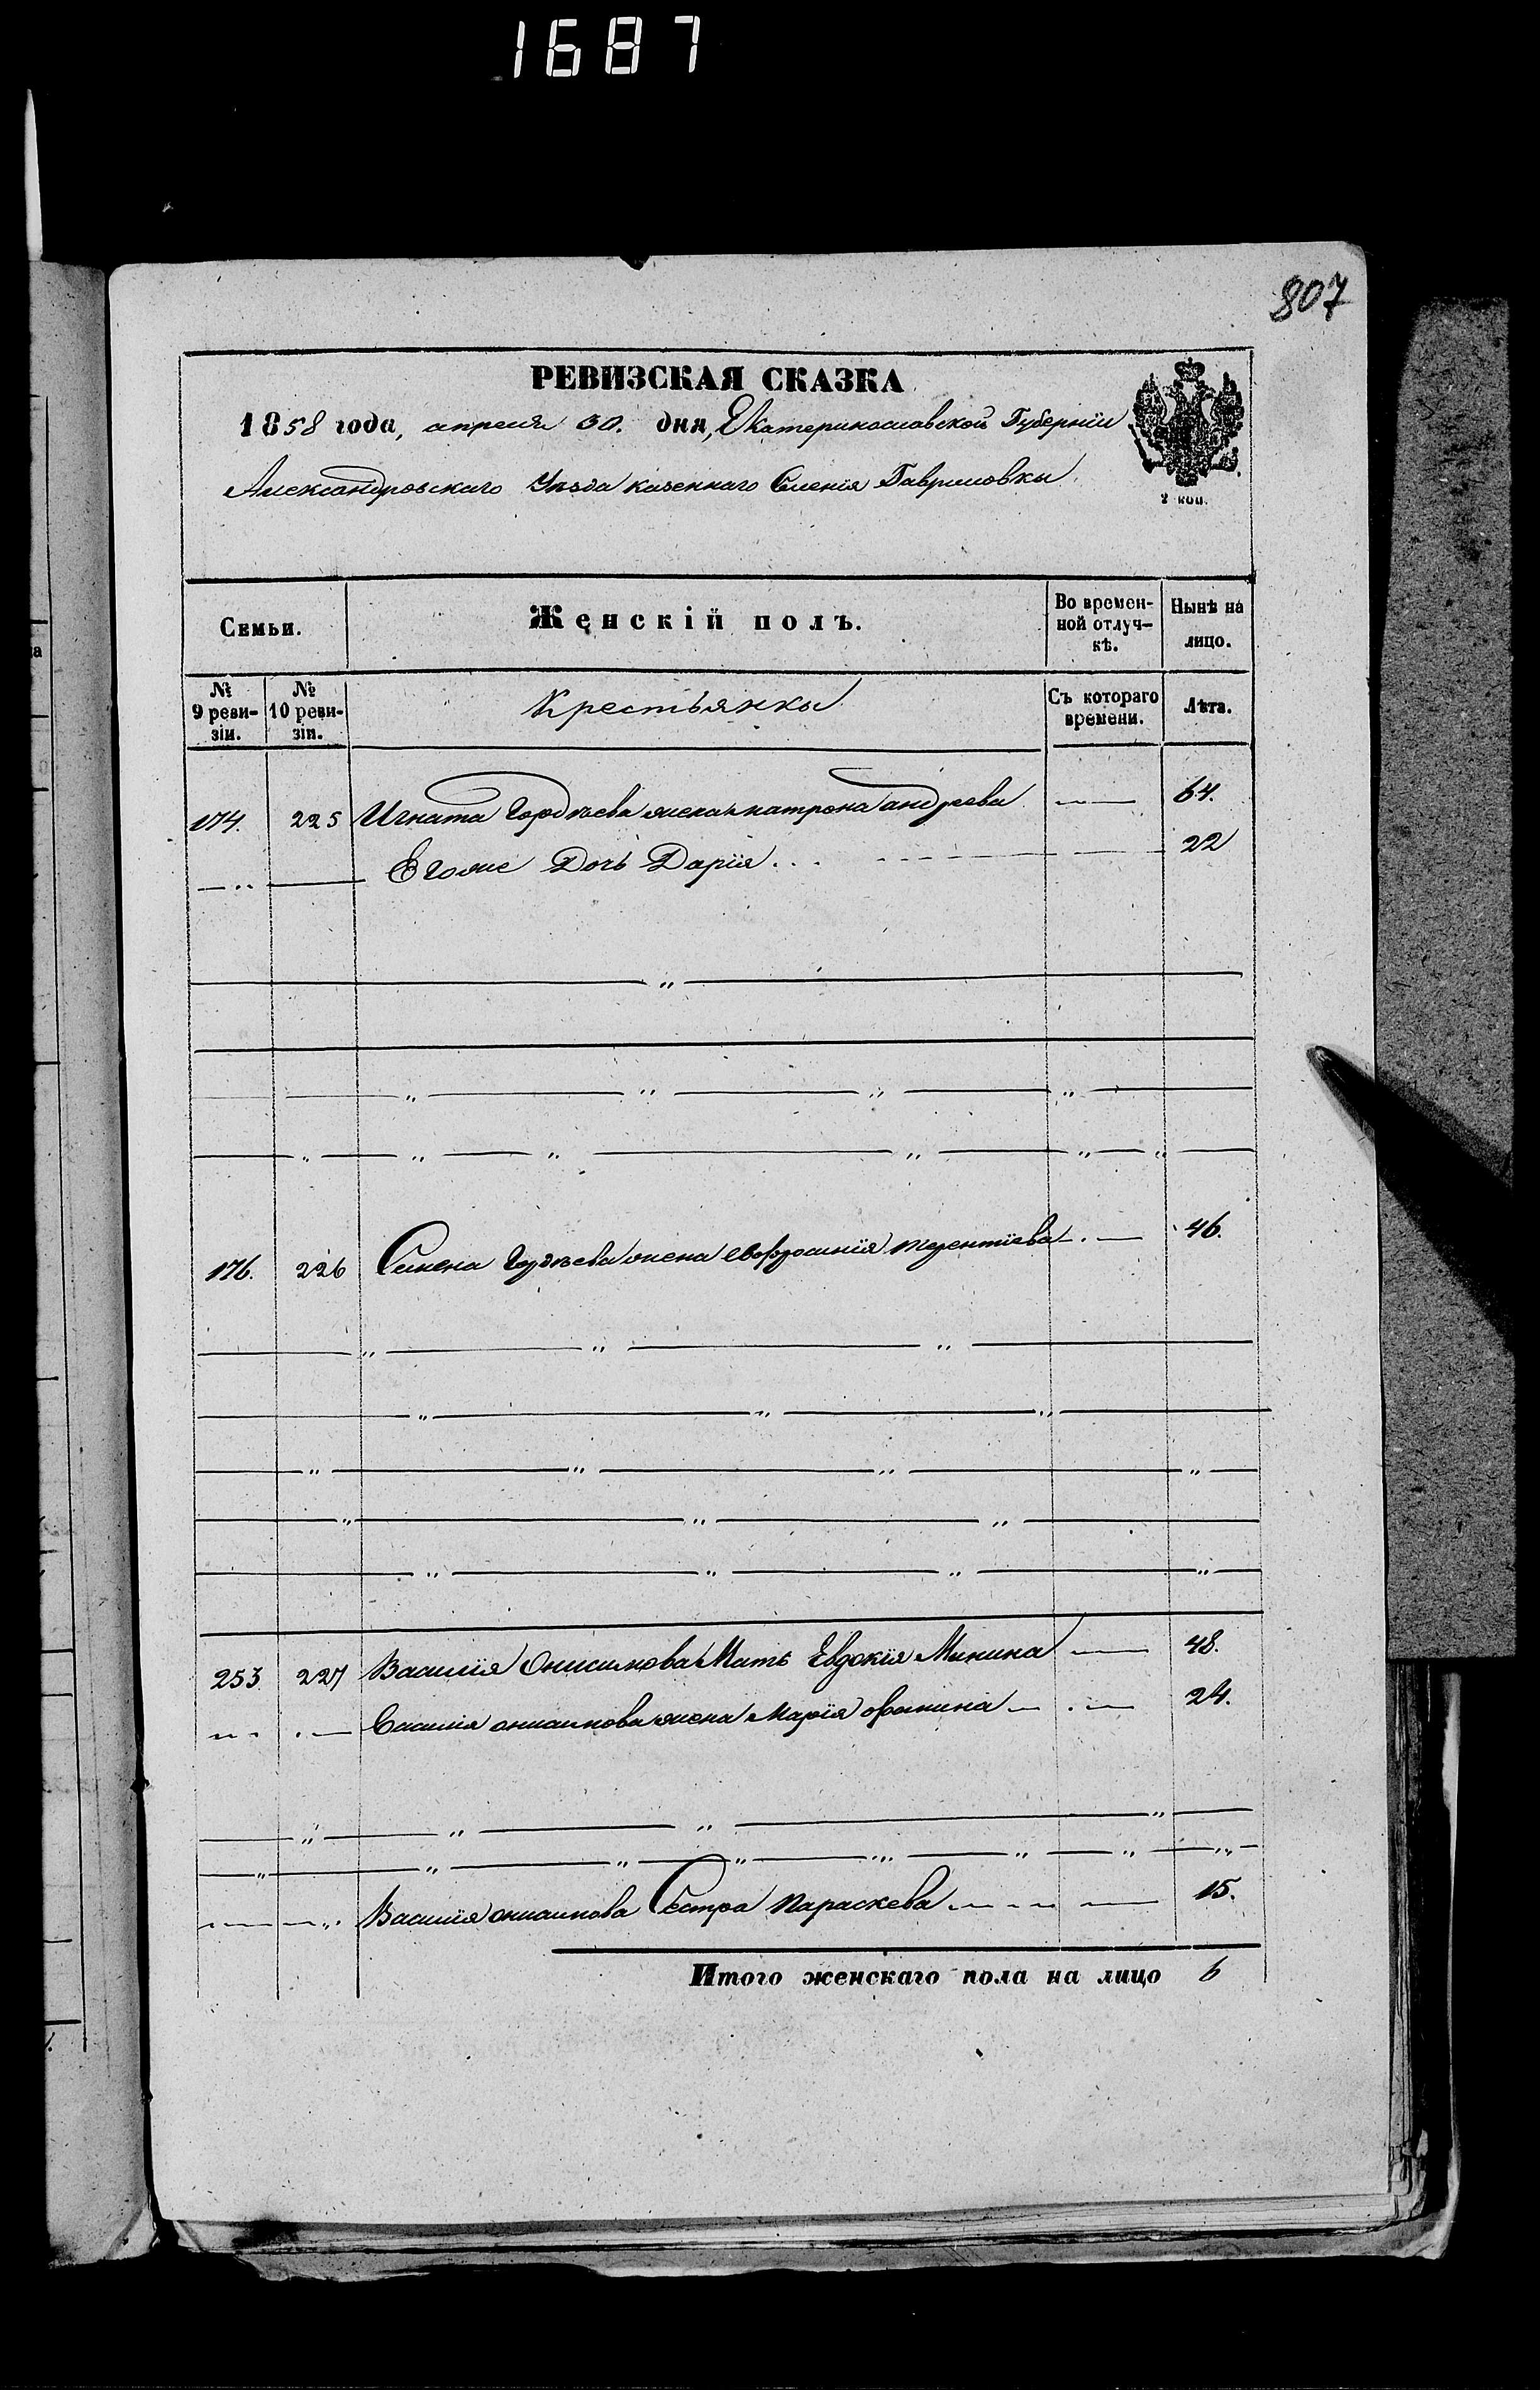 1687
807
РЕВИЗСКАЯ СКАЗКА
1858 года, апреля 30. дня, Екатеринославской Губерніи
Александровскаго Уѣзда казеннаго Селенія Гавриловки
2 коп.
Семьи. Женскій полъ. Во времен-ной отлуч-кѣ. Нынѣ на лицо.
№ 9 реви-зіи. № 10 реви-зіи. Крестьянки Съ котораго времени. Лѣта.
174. 225 Игната Гордѣева жена матрона андреева 64.
Егоже Дочь Дарія 22
176. 226 Семена Гордѣева жена евфросинія терентіева 46.
253. 227 Василія Онисимова Мать Евдокія Минина 48.
Василія онисимова жена Марія фомина 24.
Василія онисимова Сестра параскева 15.
Итого женскаго пола на лицо 6